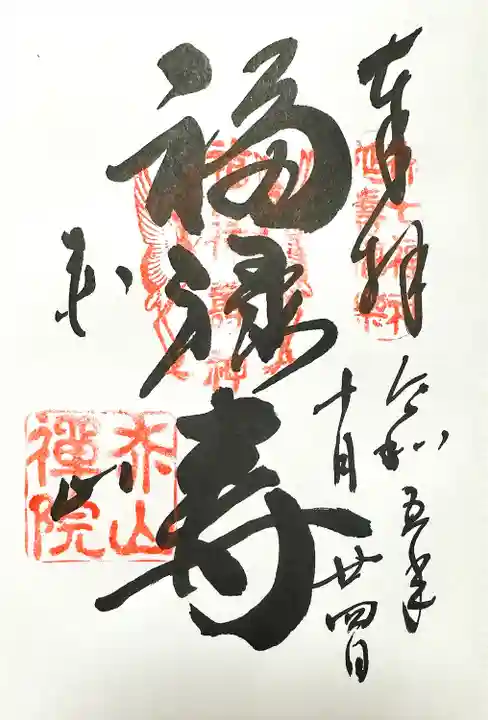 奉拝
令和五年
十月廿四日
福禄寿
赤山
赤山
禅院